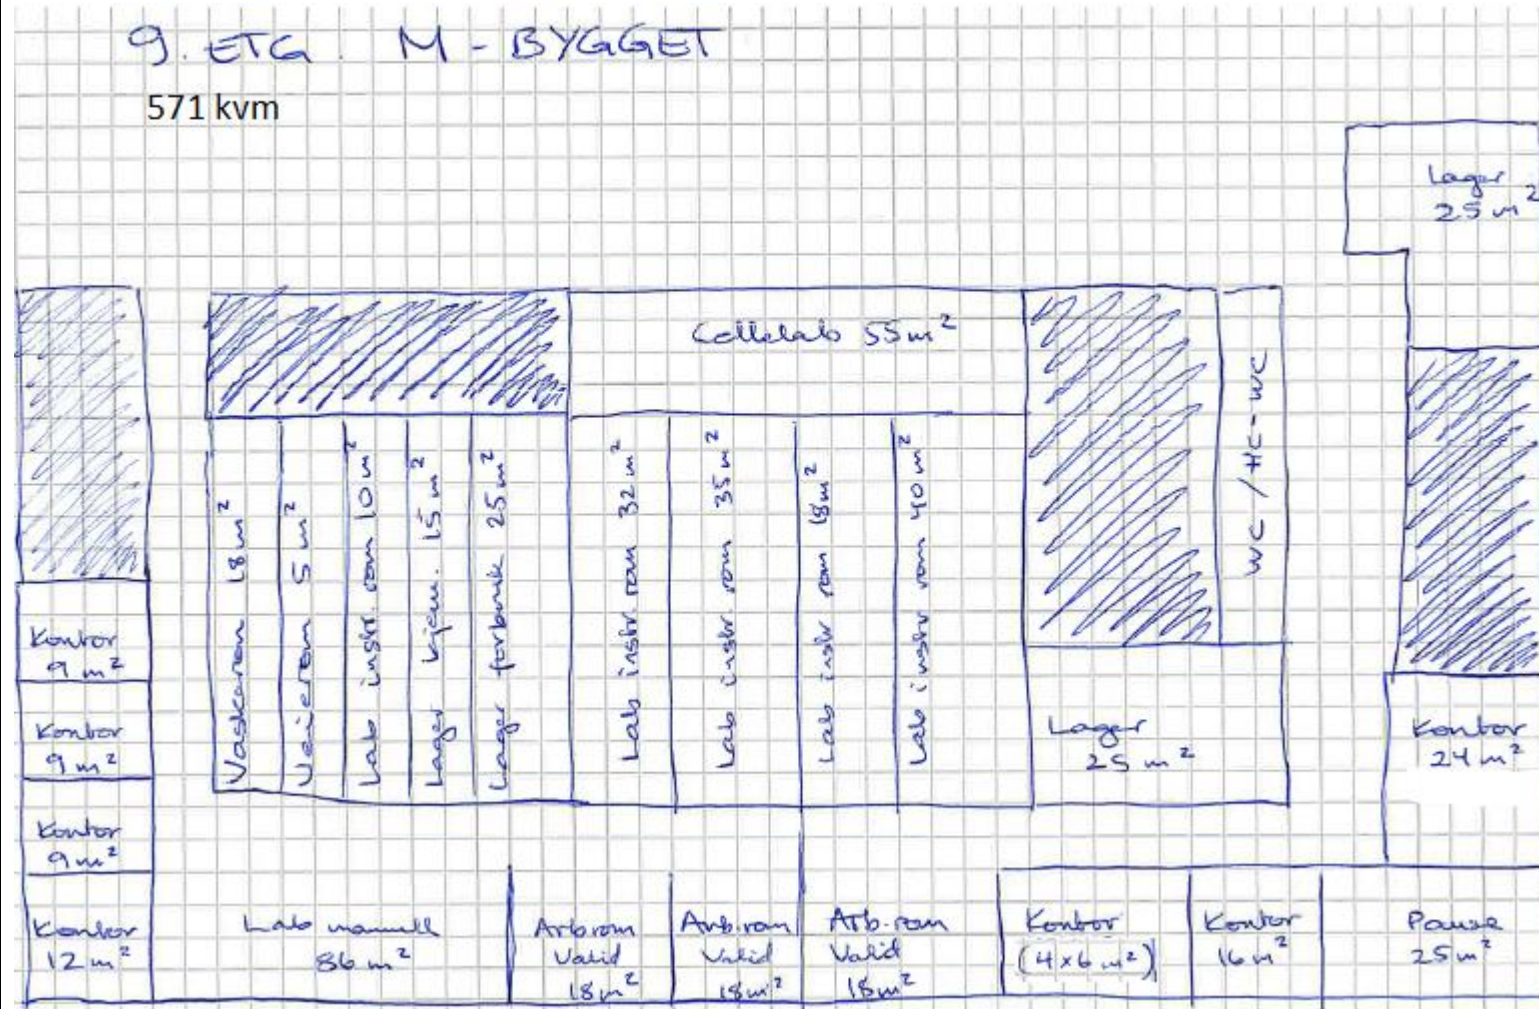 9. ETG. M - BYGGET
571 kvm
Lager
25 m²
Cellelab 55 m²
WC / HC-WC
Vaskerom 18 m²
Veierom 5 m²
Lab instr. rom 10 m²
Lager kjem. 15 m²
Lager forbruk 25 m²
Lab instr. rom 32 m²
Lab instr. rom 35 m²
Lab instr rom 18 m²
Lab instr rom 40 m²
Kontor
9 m²
Kontor
9 m²
Kontor
9 m²
Kontor
12 m²
Lager
25 m²
Kontor
24 m²
Lab manuell
86 m²
Arbrom
Valid
18 m²
Arb.rom
Valid
18 m²
Arb.rom
Valid
18 m²
Kontor
(4 x 6 m²)
Kontor
16 m²
Pause
25 m²